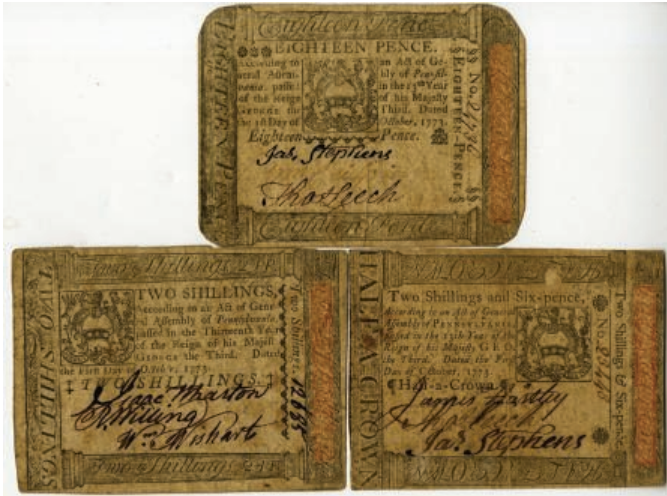 Eighteen Pence
EIGHTEEN PENCE.
According to an Act of Ge-
neral Assem- bly of Pennsyl-
vania, passed in the 13th Year
of the Reign of his Majesty
GEORGE the Third. Dated
the 1st Day of October, 1773.
Eighteen Pence.
Jas. Stephens
Tho Leech
Eighteen Pence
EIGHTEEN PENCE
No.
EIGHTEEN-PENCE.
Two Shillings
TWO SHILLINGS,
According to an Act of Gene-
ral Assembly of Pennsylvania,
passed in the Thirteenth Year
of the Reign of his Majesty
GEORGE the Third. Dated
the First Day of October, 1773.
TWO SHILLINGS.
Isaac Wharton
Wm. Mishart
Two Shillings
TWO SHILLINGS
Two Shillings.
Two Shillings and Six-pence,
According to an Act of General
Assembly of PENNSYLVANIA,
passed in the 13th Year of the
Reign of his Majesty GEO.
the Third. Dated the First
Day of October, 1773.
Half-a-Crown.
James
Jas. Stephens
HALF A CROWN
No.
Two Shillings & Six-pence